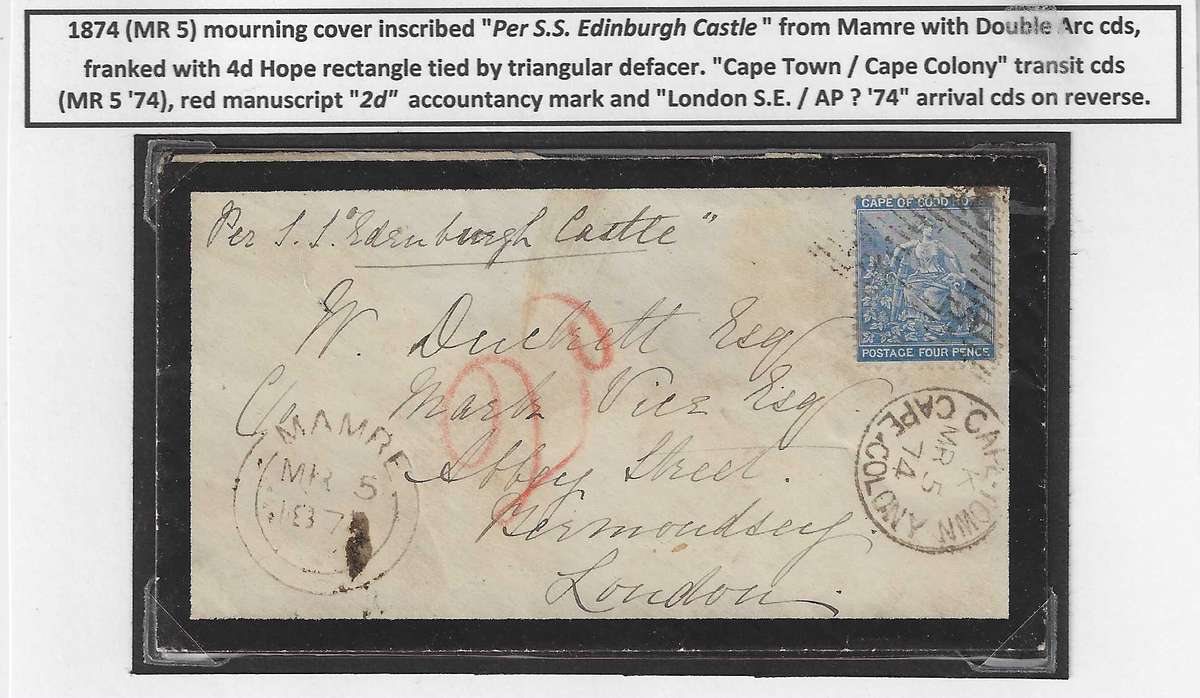 1874 (MR 5) mourning cover inscribed "Per S.S. Edinburgh Castle " from Mamre with Double Arc cds,
franked with 4d Hope rectangle tied by triangular defacer. "Cape Town / Cape Colony" transit cds
(MR 5 '74), red manuscript "2d" accountancy mark and "London S.E. / AP ? '74" arrival cds on reverse.
Per S.S. "Edenburgh Castle"
CAPE OF GOOD HOPE
POSTAGE FOUR PENCE
W. Duckett Esq
C/o Mark Vice Esq.
Abbey Street.
Bermondsey.
London.
MAMRE
MR 5
74
CAPE TOWN
K
MR 5
74
CAPE COLONY